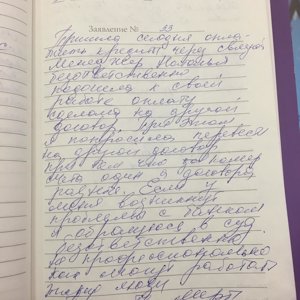 Заявление № 33
Пришла сегодня опла-
тить кредит через связной
Менеджер Наталья
безответственно
подошла к своей
работе оплату
сделала на другой
договор, при этом
я попросила перевести
на другой договор
при том что номер
счета один а договора
разные. Если у
меня возникнут
проблемы с Банком
я обращусь в суд.
безответственны
не профессионально
как могут работать
такие люди